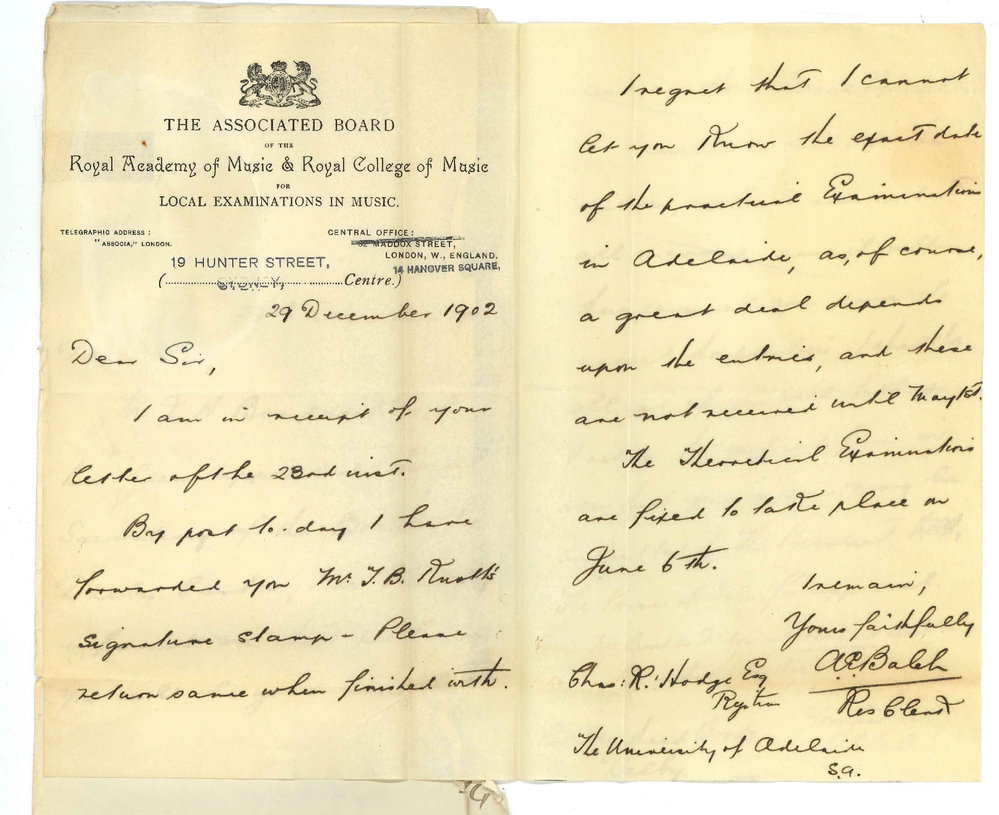 THE ASSOCIATED BOARD
OF THE
Royal Academy of Music & Royal College of Music
FOR
LOCAL EXAMINATIONS IN MUSIC.
TELEGRAPHIC ADDRESS :
"ASSOCIA," LONDON.
CENTRAL OFFICE :
MADDOX STREET,
LONDON, W., ENGLAND.
14 HANOVER SQUARE,
19 HUNTER STREET,
(SYDNEY, Centre.)
29 December 1902
Dear Sir,
I am in receipt of your
letter of the 23rd inst.
By post to-day I have
forwarded you Mr. T. B. Knott's
signature stamp – Please
return same when finished with.
I regret that I cannot
let you know the exact date
of the practical Examinations
in Adelaide, as, of course,
a great deal depends
upon the entries, and these
are not received until May 1st.
The Theoretical Examinations
are fixed to take place on
June 6th.
I remain,
Yours faithfully
A. E. Balch
Res Clerk
Chas: R. Hodge Esq
Regstrar
The University of Adelaide
S.A.